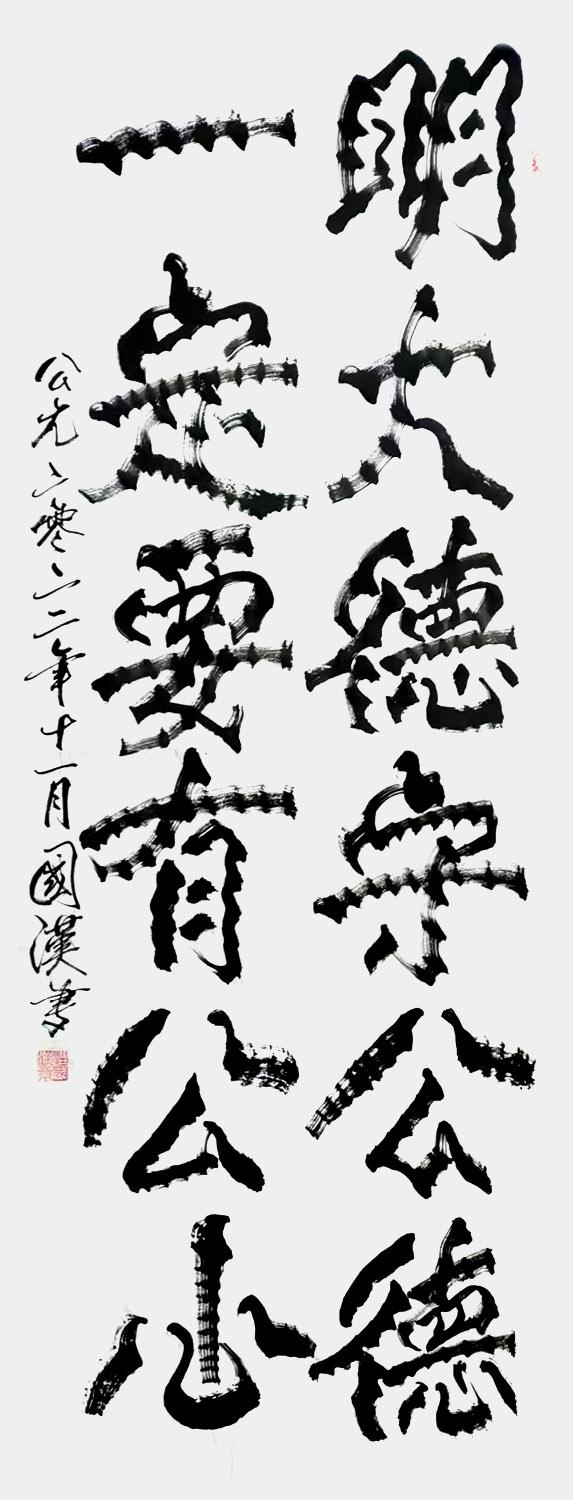 明大德守公德
一定要有公心
公元二零二二年十一月國漢書